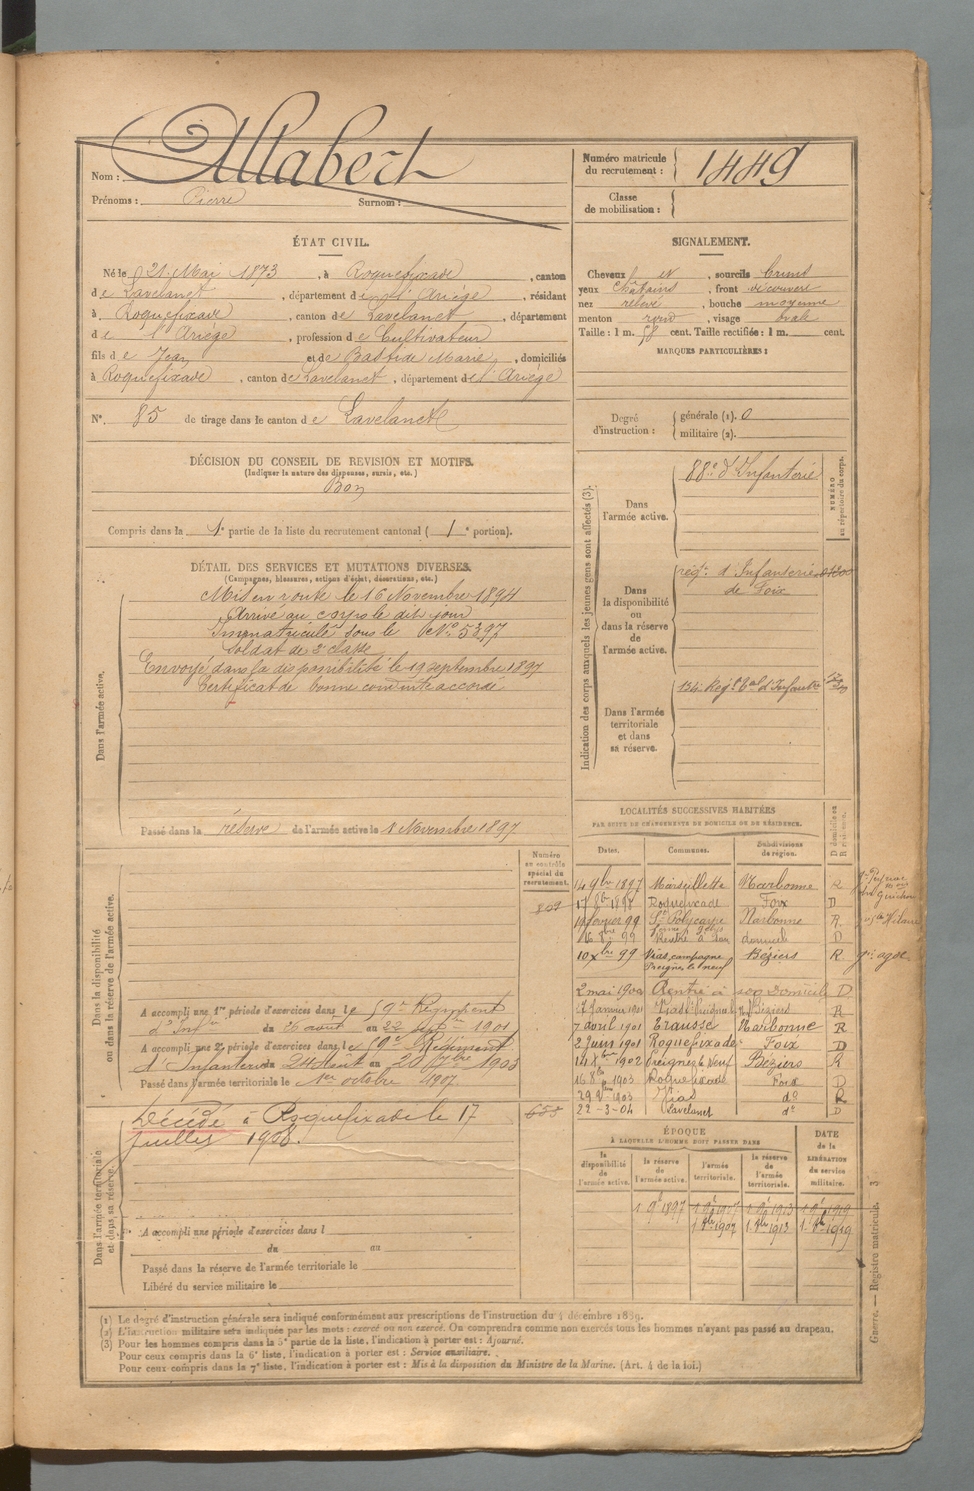 Nom : Allabert
Prénoms : Pierre Surnom :
Numéro matricule
du recrutement : 1449
Classe
de mobilisation :
ÉTAT CIVIL.
Né le 21 Mai 1873, à Roquefixade, canton
de Lavelanet, département de l'Ariège, résidant
à Roquefixade, canton de Lavelanet, département
de l'Ariège, profession de Cultivateur
fils de Jean et de Bastide Marie, domiciliés
à Roquefixade, canton de Lavelanet, département de l'Ariège
N°. 85 de tirage dans le canton de Lavelanet
SIGNALEMENT.
Cheveux et, sourcils bruns
yeux châtains, front découvert
nez relevé, bouche moyenne
menton rond, visage ovale
Taille : 1 m. 58 cent. Taille rectifiée : 1 m. cent.
MARQUES PARTICULIÈRES :
Degré
d'instruction :
générale (1). 0
militaire (2).
DÉCISION DU CONSEIL DE REVISION ET MOTIFS.
(Indiquer la nature des dispenses, sursis, etc.)
Bon
Compris dans la 1e partie de la liste du recrutement cantonal (1e portion).
DÉTAIL DES SERVICES ET MUTATIONS DIVERSES.
(Campagnes, blessures, actions d'éclat, décorations, etc.)
Dans l'armée active.
Mis en route le 16 Novembre 1894
Arrivé au corps le dit jour
Immatriculé sous le N° 5397
Soldat de 2e classe
Envoyé dans la disponibilité le 19 septembre 1897
Certificat de bonne conduite accordé
Passé dans la réserve de l'armée active le 1 Novembre 1897
Indication des corps auxquels les jeunes gens sont affectés (3).
NUMÉRO
au répertoire du corps.
Dans
l'armée active.
88e d'Infanterie
Dans
la disponibilité
ou
dans la réserve
de
l'armée active.
régt. d'Infanterie
de Foix
Dans l'armée
territoriale
et dans
sa réserve.
134e Régt tal d'Infanterie
Dans la disponibilité
ou dans la réserve de l'armée active.
Numéro
au contrôle
spécial du
recrutement.
809
A accompli une 1re période d'exercices dans le 59e Régiment
d'Infie du 26 août au 22 septbre 1901
A accompli une 2e période d'exercices dans le 59e Régiment
d'Infanterie du 24 Août au 20 7bre 1903
Passé dans l'armée territoriale le 1er octobre 1907
Dans l'armée territoriale
et dans sa réserve.
Décédé à Roquefixade le 17
Juillet 1908.
655
A accompli une période d'exercices dans l
du au
Passé dans la réserve de l'armée territoriale le
Libéré du service militaire le
LOCALITÉS SUCCESSIVES HABITÉES
PAR SUITE DE CHANGEMENTS DE DOMICILE OU DE RÉSIDENCE.
Dates. Communes. Subdivisions
de région. D domicile ou
R résidence.
14 9bre 1897 Marseillette Narbonne R
17 8bre 1898 Roquefixade Foix D
février 99 St Polycarpe Narbonne R
16 8bre 99 Rentré à son domicile D
10 Xbre 99 Vias, campagne
Preignes le neuf Béziers R.
2 mai 1900 Rentré à son domicile D
Janvier 1901 Béziers R
7 avril 1901 Trausse Narbonne R
2 Juin 1901 Roquefixade Foix D
14 Xbre 1902 Preignes le Neuf Béziers R
16 8bre 1903 Roquefixade Foix D
1903 Vias do R
22-3-04 Lavelanet do D
ÉPOQUE
À LAQUELLE L'HOMME DOIT PASSER DANS
DATE
de la
LIBÉRATION
du service
militaire.
la
disponibilité
de
l'armée active.
la réserve
de
l'armée active.
l'armée
territoriale.
la réserve
de
l'armée
territoriale.
1 9e 1897 1 9e 1907 1 9e 1913 1 9e 1919
1 8bre 1907 1 8bre 1913 1 8bre 1919
(1) Le degré d'instruction générale sera indiqué conformément aux prescriptions de l'instruction du 4 décembre 1889.
(2) L'instruction militaire sera indiquée par les mots : exercé ou non exercé. On comprendra comme non exercés tous les hommes n'ayant pas passé au drapeau.
(3) Pour les hommes compris dans la 5e partie de la liste, l'indication à porter est : Ajourné.
Pour ceux compris dans la 6e liste, l'indication à porter est : Service auxiliaire.
Pour ceux compris dans la 7e liste, l'indication à porter est : Mis à la disposition du Ministre de la Marine. (Art. 4 de la loi.)
Guerre. — Registre matricule. 3